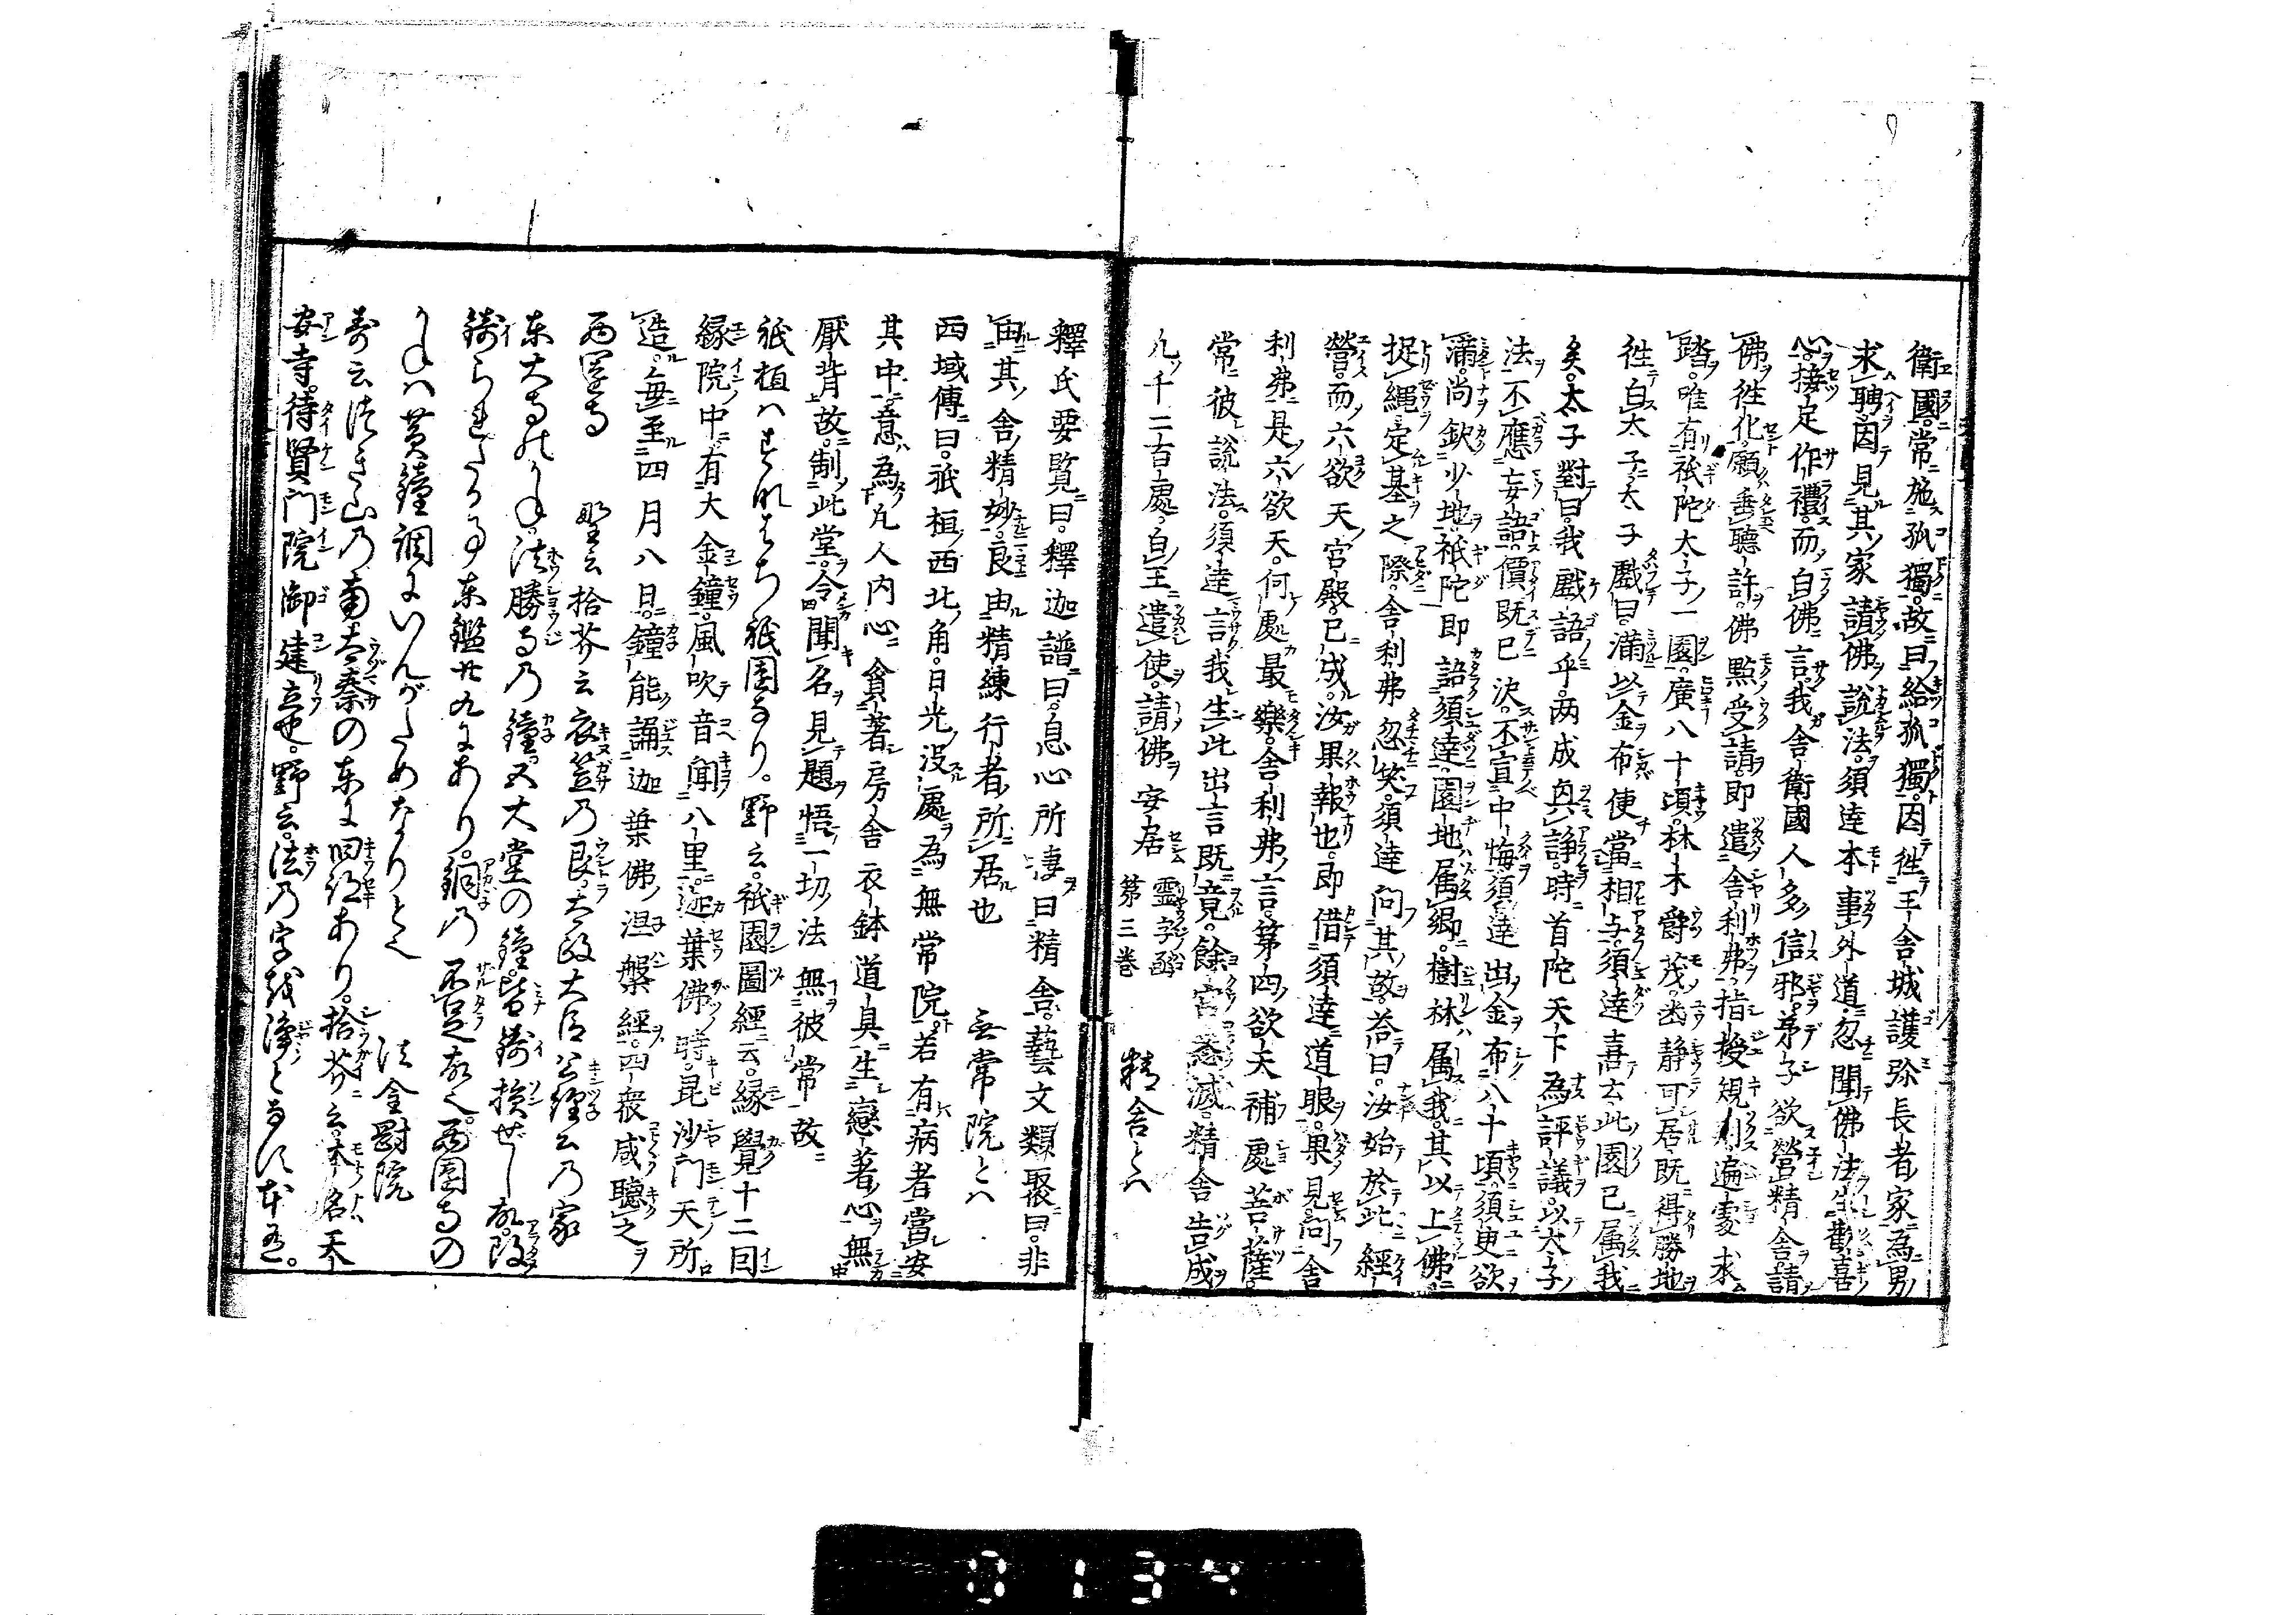 衛國常施孤獨故曰給孤獨因徃王舍城護弥長者家為男
求聘因見其家請佛說法須達本事外道忽聞佛法生歡喜
心接足作禮而白佛言我舍衛國人多信邪弟子欲營精舍請
佛徃化願垂聽許佛點受請即遣舍利弗指授規則遍處求
踏唯有祇陀太子一園廣八十頃林木欝茂幽静可居既得勝地
徃白太子太子戲曰滿以金布便當相与須達喜去此園已属我
矣太子對曰我戲語乎两成與諍時首陀天下為評議以太子
法不應妄語價既已決不宜中悔須達出金布八十頃須臾欲
滿尚欽少地祇陀即語須達園地属卿樹林属我其以上佛
捉繩定基之際舍利弗忽笑須達問其故荅曰汝始於此經
營而六欲天宮殿已成汝果報也即借須達道眼果見問舍
利弗是六欲天何處最樂舍利弗言第四欲天補處菩薩
常彼說法須達言我生此出言既竟餘宮悉滅精舍告成
凡千二百處白王遣使請佛安居 第三巻 精舍とハ
釋氏要覧曰釋迦譜曰息心所凄曰精舍藝文類聚曰非
由其舍精妙良由精練行者所居也 無常院とハ
西域傳曰祇桓西北角日光没處為無常院若有病者當安
其中意為凡人内心貪著房舍衣鉢道具生戀著心無
厭背故制此堂令聞名見題悟一切法無彼常故
祇桓ハすなはち祇園なり野云祇園圖經云縁覺十二因
縁院中有大金鐘風吹音聞八里迦葉佛時毘沙門天所
造毎至四月八日鐘能誦迦葉佛涅槃經四衆咸聴之
西園寺 野云拾芥云衣笠乃艮太政大臣公經公乃家
東大寺のかね法勝寺乃鐘又大堂の鐘皆鋳損ぜし故改
鋳られたる事東鑑廿九にあり銅乃不足故也西園寺の
かねハ黄鐘調にいんがためなりとぞ 法金剛院
寿云法き山乃南太秦の東に旧跡あり拾芥云本名天
安寺待賢門院御建立也野云法乃字を濁となす